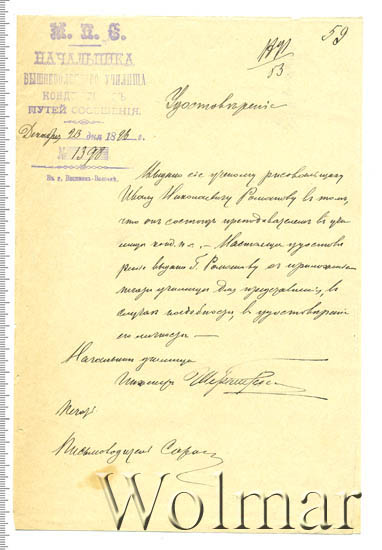 М. П. С.
НАЧАЛЬНИКА
ВЫШНЕВОЛОЦКАГО УЧИЛИЩА
КОНДУКТОРОВЪ
ПУТЕЙ СООБЩЕНІЯ.
Декабря 23 дня 1896 г.
№ 1390
Въ г. Вышнемъ-Волочкѣ.
59
53
Удостовѣреніе
Выдано сіе ученому рисовальщику
Ивану Николаевичу въ томъ,
что онъ состоитъ преподавателемъ въ учи-
лищѣ конд. п. с. — Настоящее удостовѣ-
реніе выдано Г. съ приложеніемъ
печати училища для представленія, въ
случаѣ надобности, въ удостовѣреніе
его личности
Начальникъ училища
Инженеръ
Печать
Письмоводитель
Wolmar